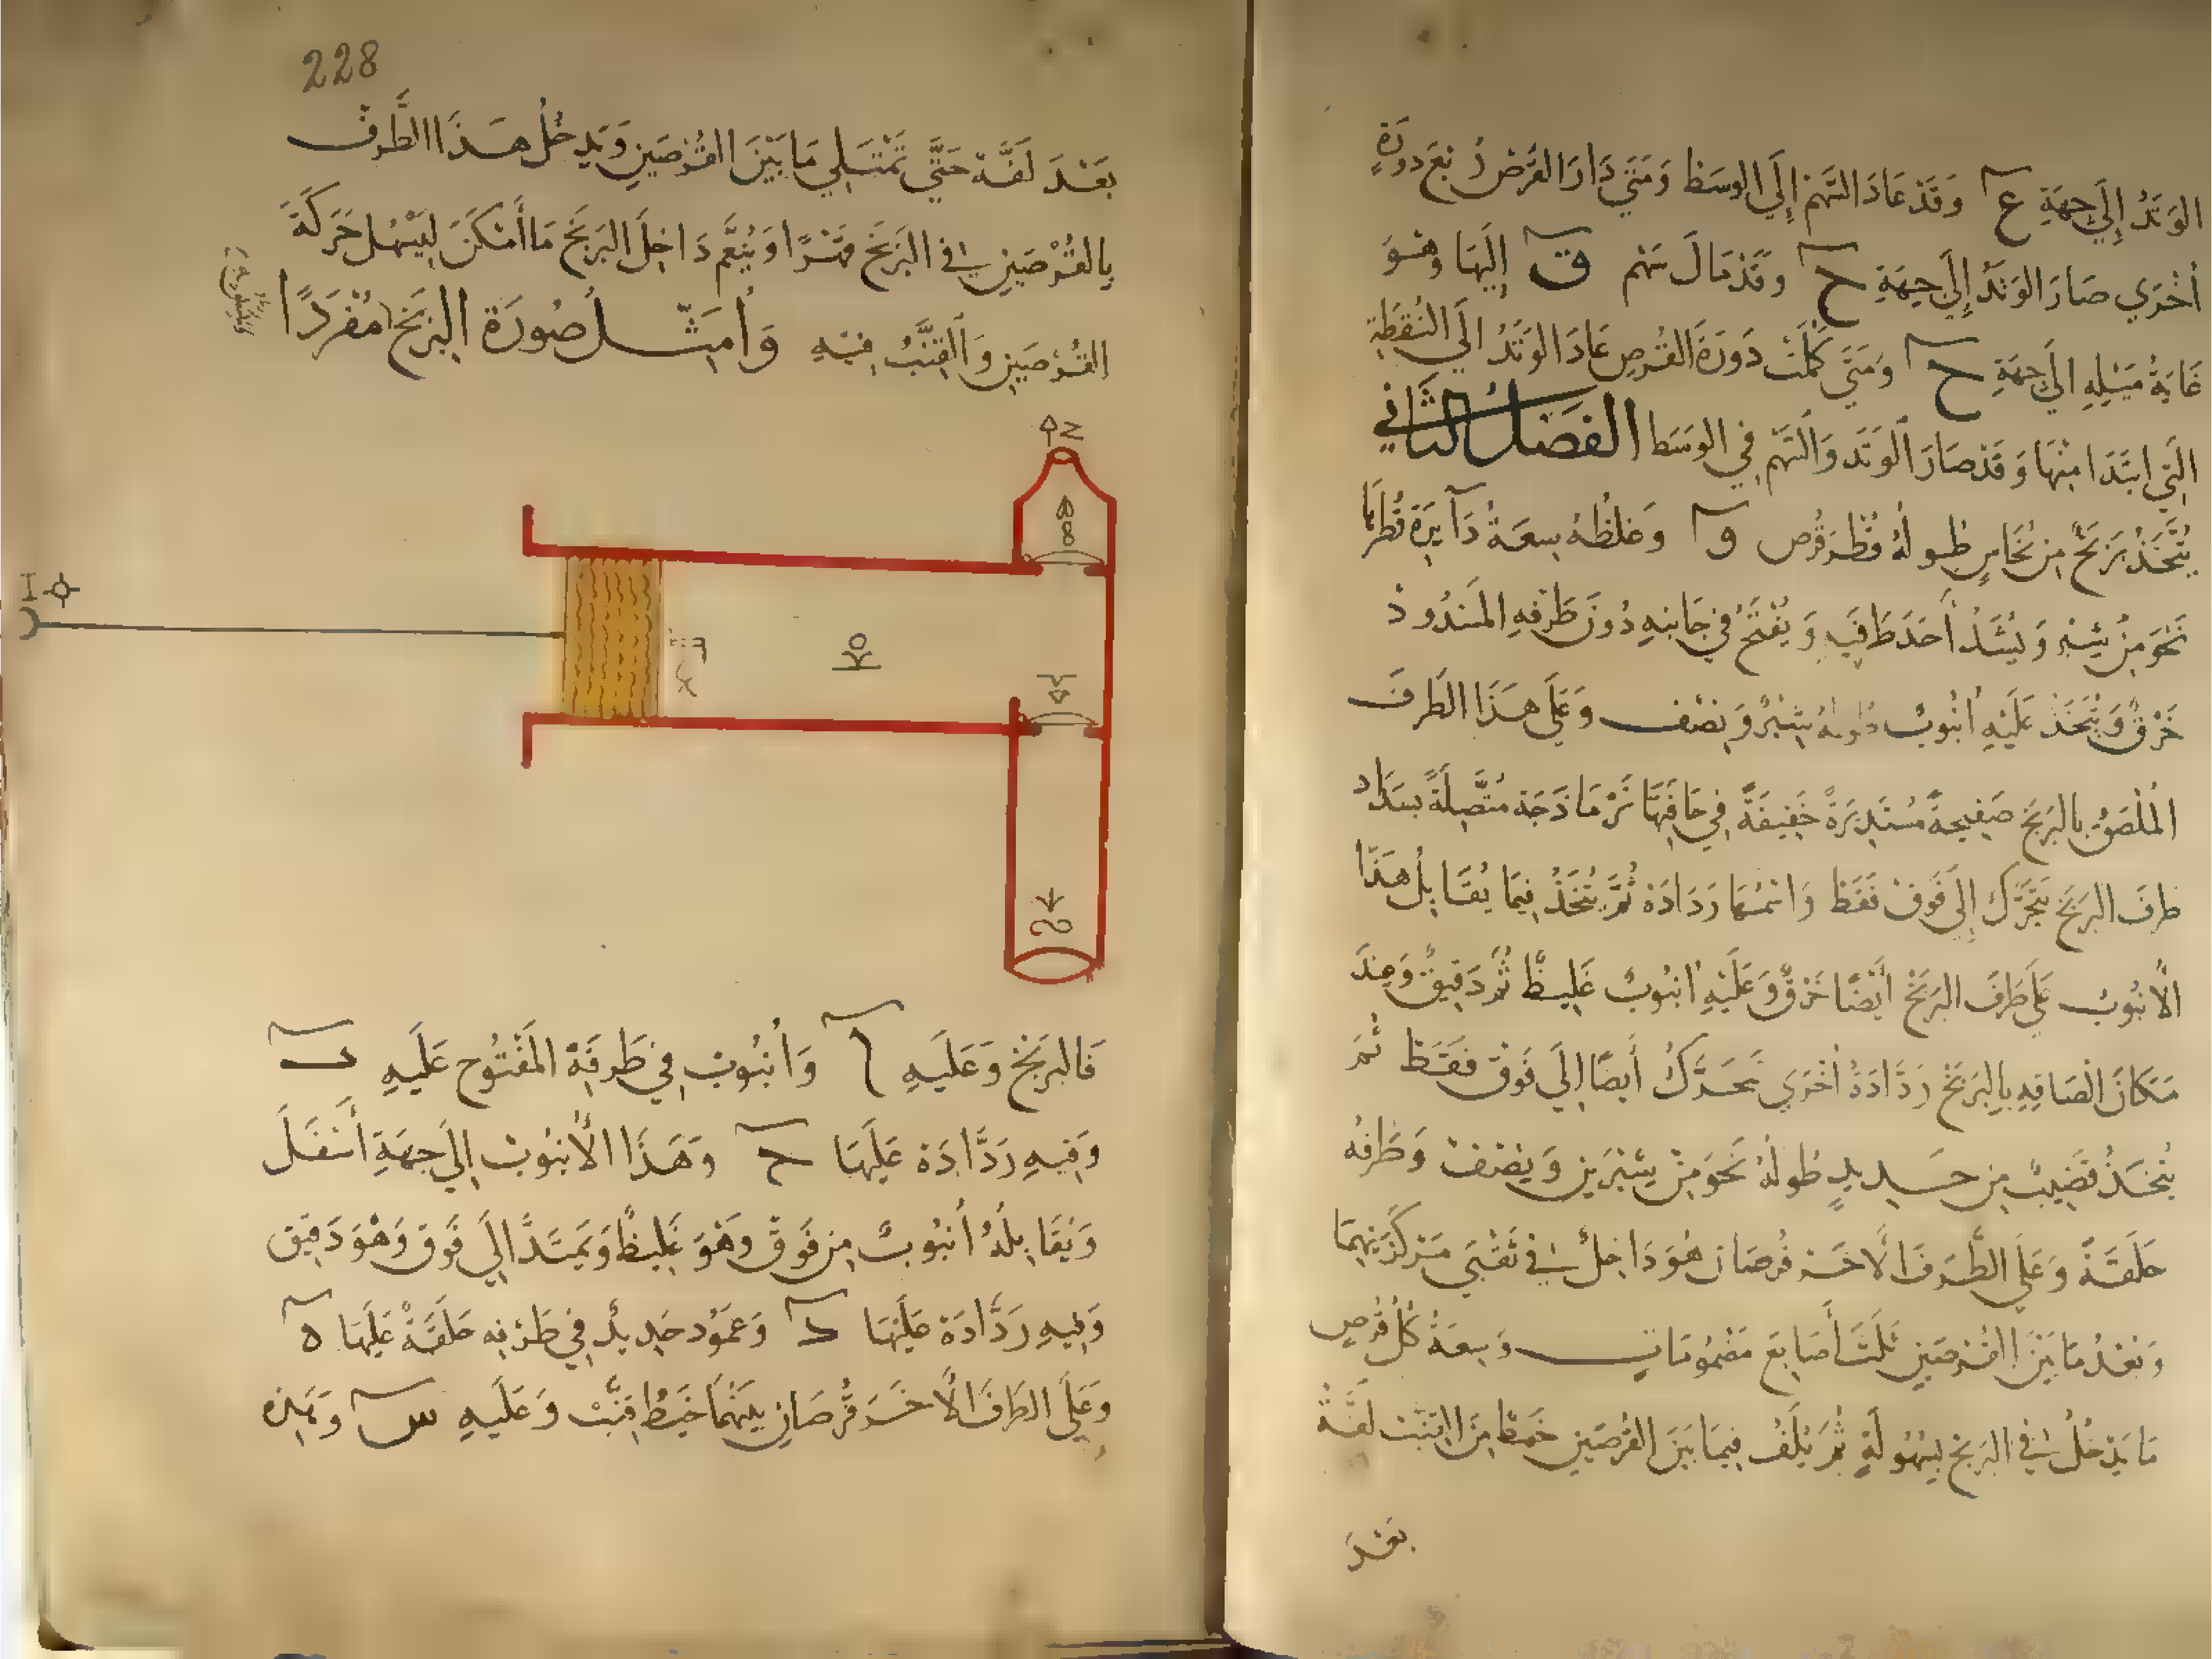 الوَتَدُ إِلَى جِهَةِ ع وَقَدْ عَادَ السَّهْمُ إِلَى الوَسَطِ وَمَتَى دَارَ القُرْصُ رُبْعَ دَورَةٍ
أُخْرَى صَارَ الوَتَدُ إِلَى جِهَةِ ح وَقَدْ مَالَ سَهْم ق إِلَيْهَا وَهُوَ
غَايَةُ مَيْلِهِ إِلَى جِهَةِ ح وَمَتَى كَمُلَتْ دَورَةُ القُرْصِ عَادَ الوَتَدُ إِلَى النُّقْطَةِ
الَّتِي ابْتَدَا مِنْهَا وَقَدْ صَارَ الوَتَد وَالسَّهْم فِي الوَسَط الفَصْلُ الثَّانِي
يُتَّخَذُ بَرْبَخٌ مِنْ نُحَاسٍ طُولُهُ قُطْرُ قُرْص و وَغِلَظُهُ سِعَةُ دَائِرَة قُطْرُهَا
نَحْوَ مِنْ شِبْرٍ وَيُسَدُّ أَحَدَ طَرَفَيْهِ وَيُفْتَحُ فِي جَانِبِهِ دُونَ طَرَفِهِ المَسْدُود
خَرْقٌ وَيُتَّخَذ عَلَيْهِ أُنْبُوبٌ طُولهُ شِبْرٌ وَنِصْف وَعَلَى هَذَا الطَّرَف
المُلْصَقُ بِالبَرْبَخ صَفِيحَةً مُسْتَدِيرَةً خَفِيفَةً فِي حَافَتِهَا نَرْمَاذَجَة مُتَّصِلَةً بِسَدَاد
طَرَف البَرْبَخ يَتَحَرَّك إِلَى فَوْق فَقَط وَاسْمُهَا رَدَّادَة ثُمَّ يُتَّخَذُ فِيمَا يُقَابِلُ هَذَا
الأُنْبُوب عَلَى طَرَف البَرْبَخ أَيْضًا خَرْقٌ وَعَلَيْهِ أُنْبُوبٌ غَلِيظٌ ثُمَّ دَقِيقٌ وَعِنْدَ
مَكَانَ الْصَاقِهِ بِالبَرْبَخ رَدَّادَةٌ أُخْرَى تَتَحَرَّكُ أَيْضًا إِلَى فَوْق فَقَط ثُمَّ
يُتَّخَذُ قَضِيبٌ مِنْ حَدِيدٍ طُولُهُ نَحْوَ مِنْ شِبْرَيْن وَنِصْف وَطَرَفُه
حَلَقَةً وَعَلَى الطَّرَف الآخَر قُرْصَان هُوَ دَاخِلٌ فِي ثَقْبَي مَرْكَزَيْهِمَا
وَبُعْدُ مَا بَيْنَ القُرْصَيْنِ ثَلَثَ أَصَابِعَ مَضْمُومَاتٍ وَسِعَةُ كُلِّ قُرْصٍ
مَا يَدْخُلُ فِي البَرْبَخ بِسُهُولَةٍ ثُمَّ يُلَفُّ فِيمَا بَيْنَ القُرْصَيْنِ خَيْط مِنَ القِنَّب لَفَّةً
بَعْدَ
228
بَعْدَ لَفَّة حَتَّى تَمْتَلِي مَا بَيْنَ القُرْصَيْنِ وَيَدخُلُ هَذَا الطَّرَف
بِالقُرْصَيْنِ فِي البَرْبَخ قَسْرًا وَيُنَعَّم دَاخِلَ البَرْبَخ مَا أَمْكَنَ لِيَسْهُلَ حَرَكَةَ
القُرْصَيْنِ وَالقِنَّبُ فِيْهِ وَأُمَثِّلُ صُورَةَ البَرْبَخ مُفْرَدًا
فَالبَرْبَخ وَعَلَيْهِ ا وَأُنْبُوب فِي طَرَفِهِ المَفْتُوح عَلَيْهِ ب
وَفِيهِ رَدَّادَة عَلَيْهَا ح وَهَذَا الأُنْبُوب إِلَى جِهَةِ أَسْفَلَ
وَيُقَابِلُهُ أُنْبُوبٌ مِنْ فَوْقٌ وَهُوَ غَلِيظٌ وَيَمْتَدُّ إِلَى فَوْق وَهُوَ دَقِيق
وَفِيهِ رَدَّادَة عَلَيْهَا د وَعَمُود حَدِيدٌ فِي طَرَفِه حَلَقَةٌ عَلَيْهَا ه
وَعَلَى الطَرَف الآخَر قُرْصَانِ بَيْنَهُمَا خَيْطُ قِنَّب وَعَلَيْهِ س وَبَيْن